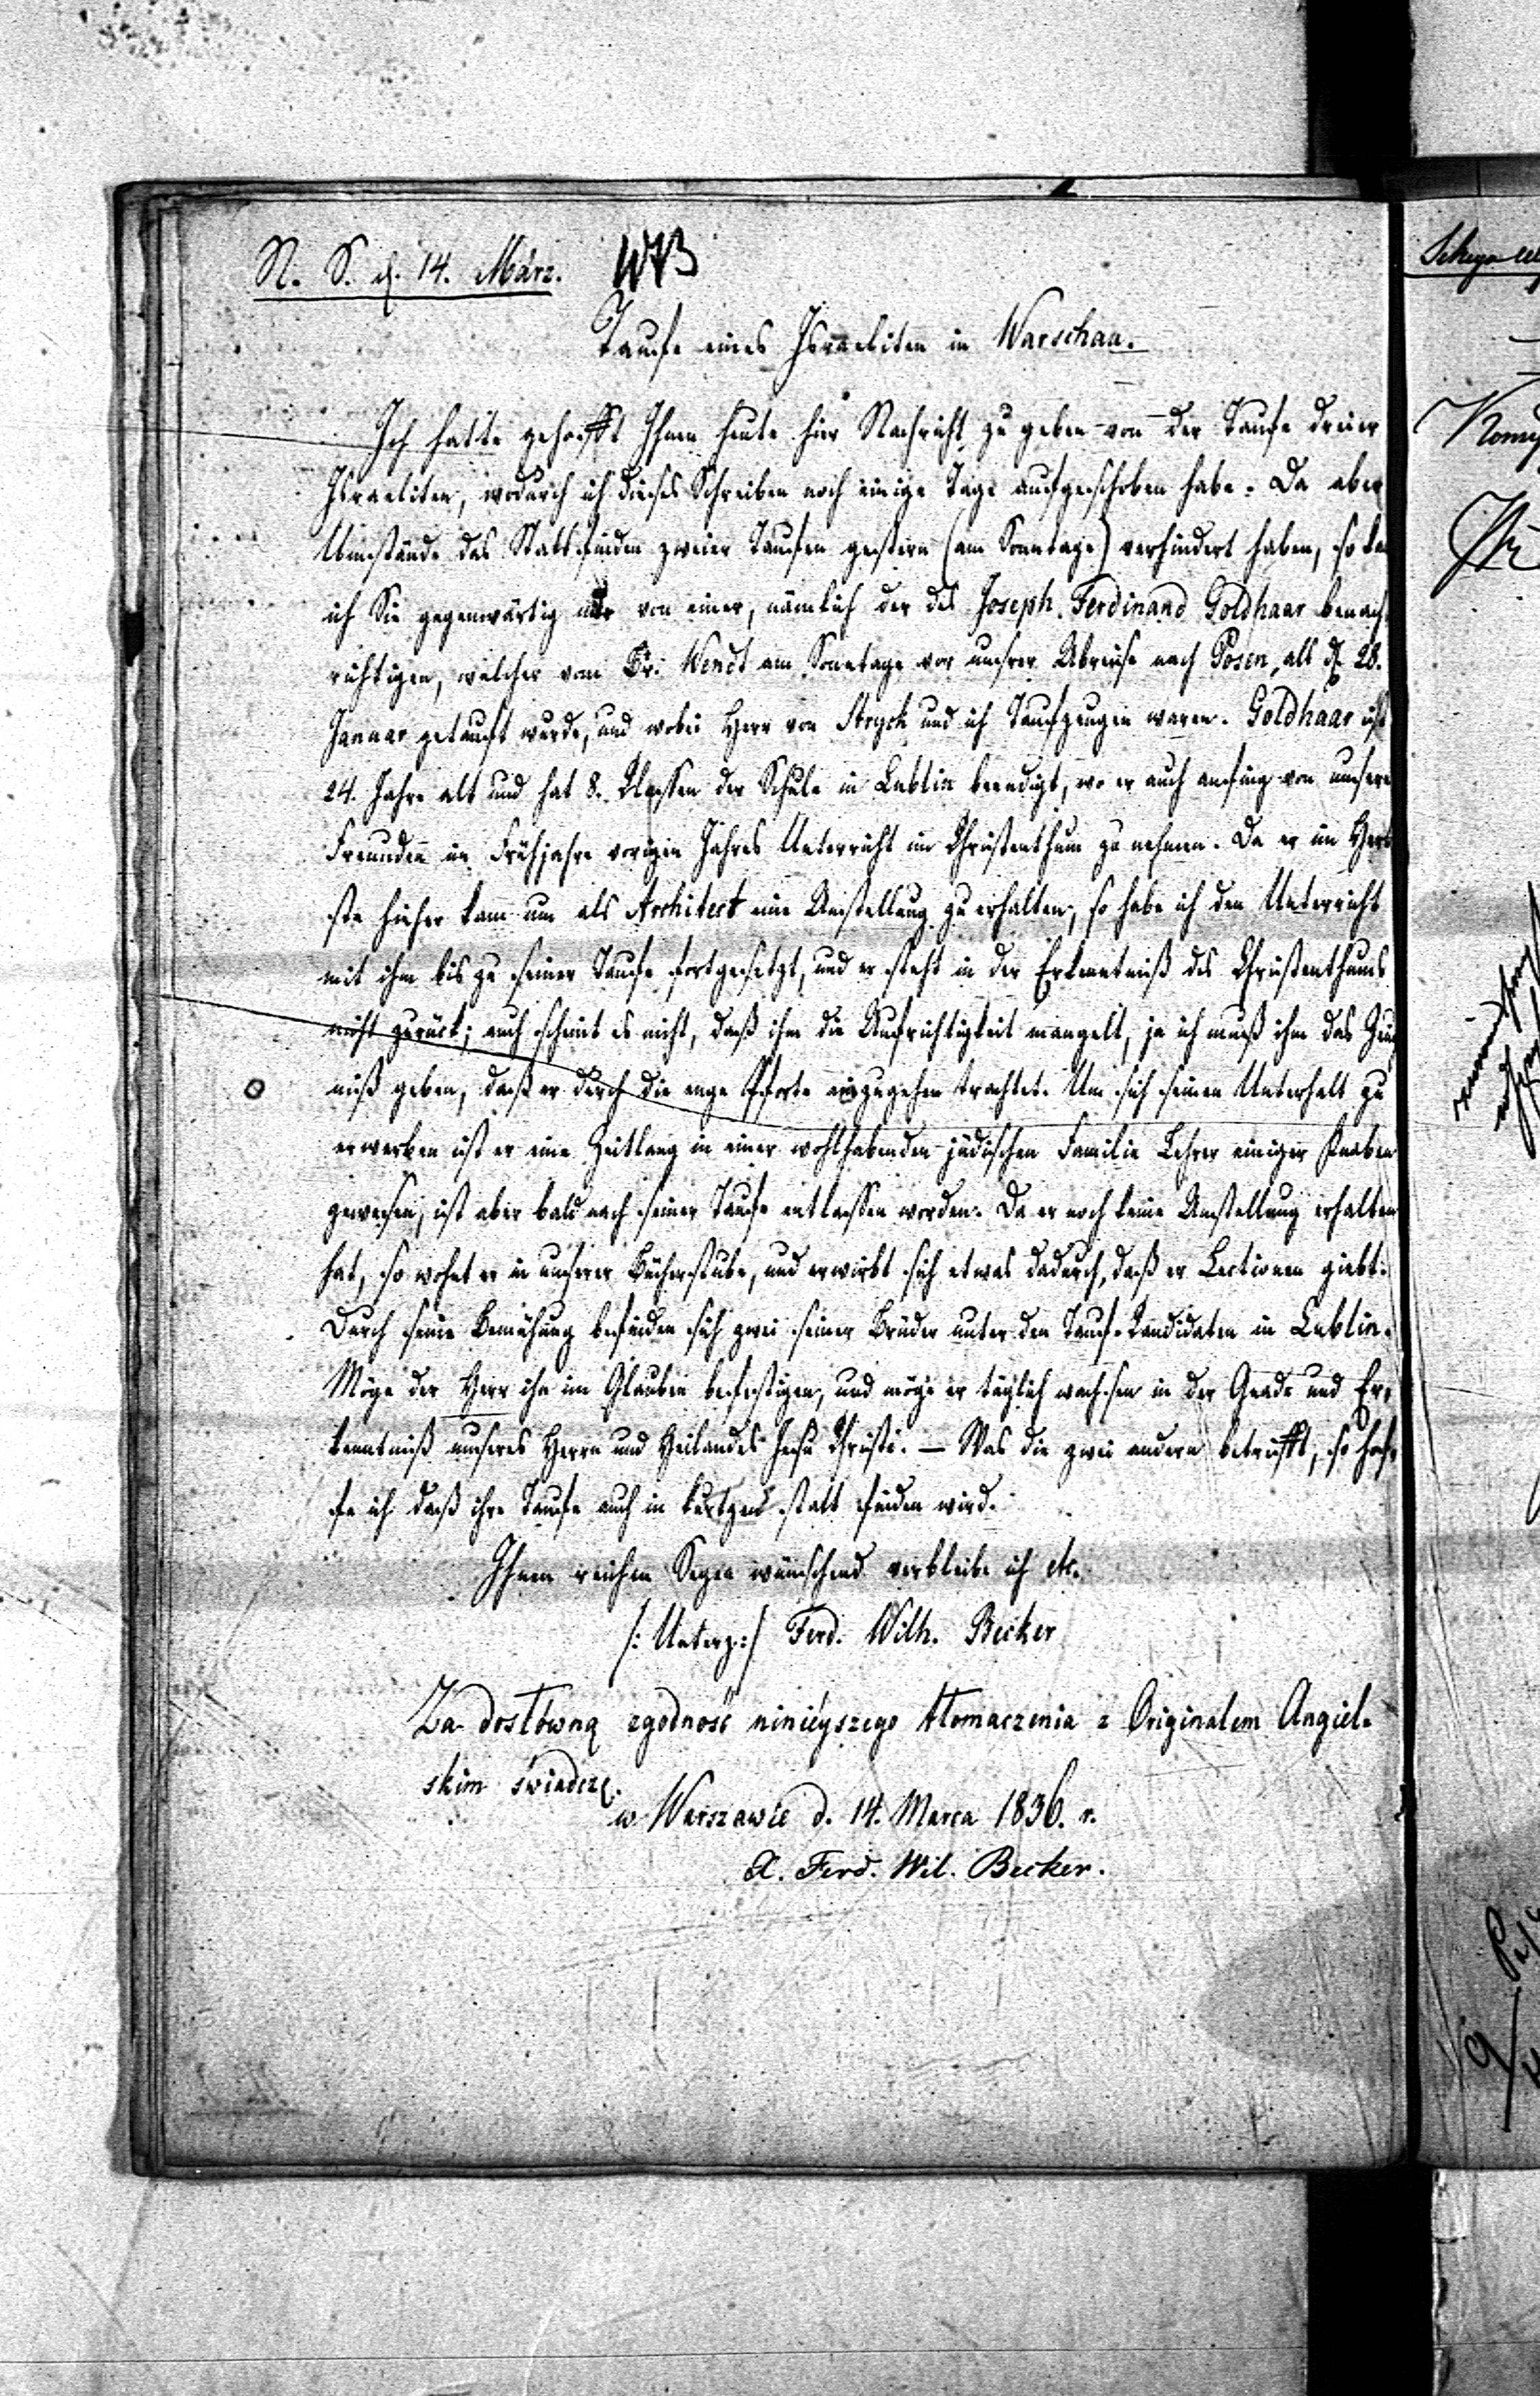 N. S. d. 14. März.
Taufe eines Israeliten in Warschau.
Ich hatte gehofft Ihnen heute hier Nachricht zu geben von der Taufe dreier
Israeliten, wodurch ich dieses Schreiben noch einige Tage aufgeschoben habe. Da aber
Umstände das Stattfinden zweier Taufen gestern (am Sonntage) verhindert haben, so
ich Sie gegenwärtig nur von einer, nämlich der des Joseph Ferdinand Goldhaar benach,
richtigen, welcher vom Br. Wendt am Sonntage vor unsrer Abreise nach Posen, als d. 28.
Januar getauft wurde, und wobei Herr von Stryck und ich Taufzeugen waren. Goldhaar ist
24. Jahre alt und hat 8. Klassen der Schule in Lublin beendigt, wo er auch anfing von unsern
Freunden im Frühjahre vorigen Jahres Unterricht im Christenthum zu nehmen. Da er im Herb
ste hieher kam um als Architect eine Anstellung zu erhalten, so habe ich den Unterricht
mit ihm bis zu seiner Taufe fortgesetzt, und er steht in der Erkenntniß des Christenthums
nicht zurück; auch scheint es nicht, daß ihm die Aufrichtigkeit mangelt, ja ich muß ihm das Zeug
niß geben, daß er durch die enge Pforte einzugehen trachtet. Um sich seinen Unterhalt zu
erwerben ist er eine Zeitlang in einer wohlhabenden jüdischen Familie Lehrer einiger Knaben
gewesen, ist aber bald nach seiner Taufe entlassen worden. Da er noch keine Anstellung erhalten
hat, so wohnt er in unserer Bücherstube, und erwirbt sich etwas dadurch, daß er Lectionen giebt.
Durch seine Bemühung befinden sich zwei seiner Brüder unter den Tauf-Kandidaten in Lublin.
Möge der Herr ihn im Glauben befestigen, und möge er täglich wachsen in der Gnade und Er,
kenntniß unseres Herrn und Heilandes Jesu Christi. — Was die zwei andern betrifft, so hof,
fe ich daß ihre Taufe auch in kurtzen statt finden wird.
Ihnen reichen Segen wünschend verbleibe ich etc.
/: Unterz:/ Ferd. Wilh. Becker
Za dosłowną zgodność ninieyszego tłomaczenia z Originalem Angiel-
skim świadczę.
w Warszawie d. 14. Marca 1836. r.
X. Ferd. Wil. Becker.